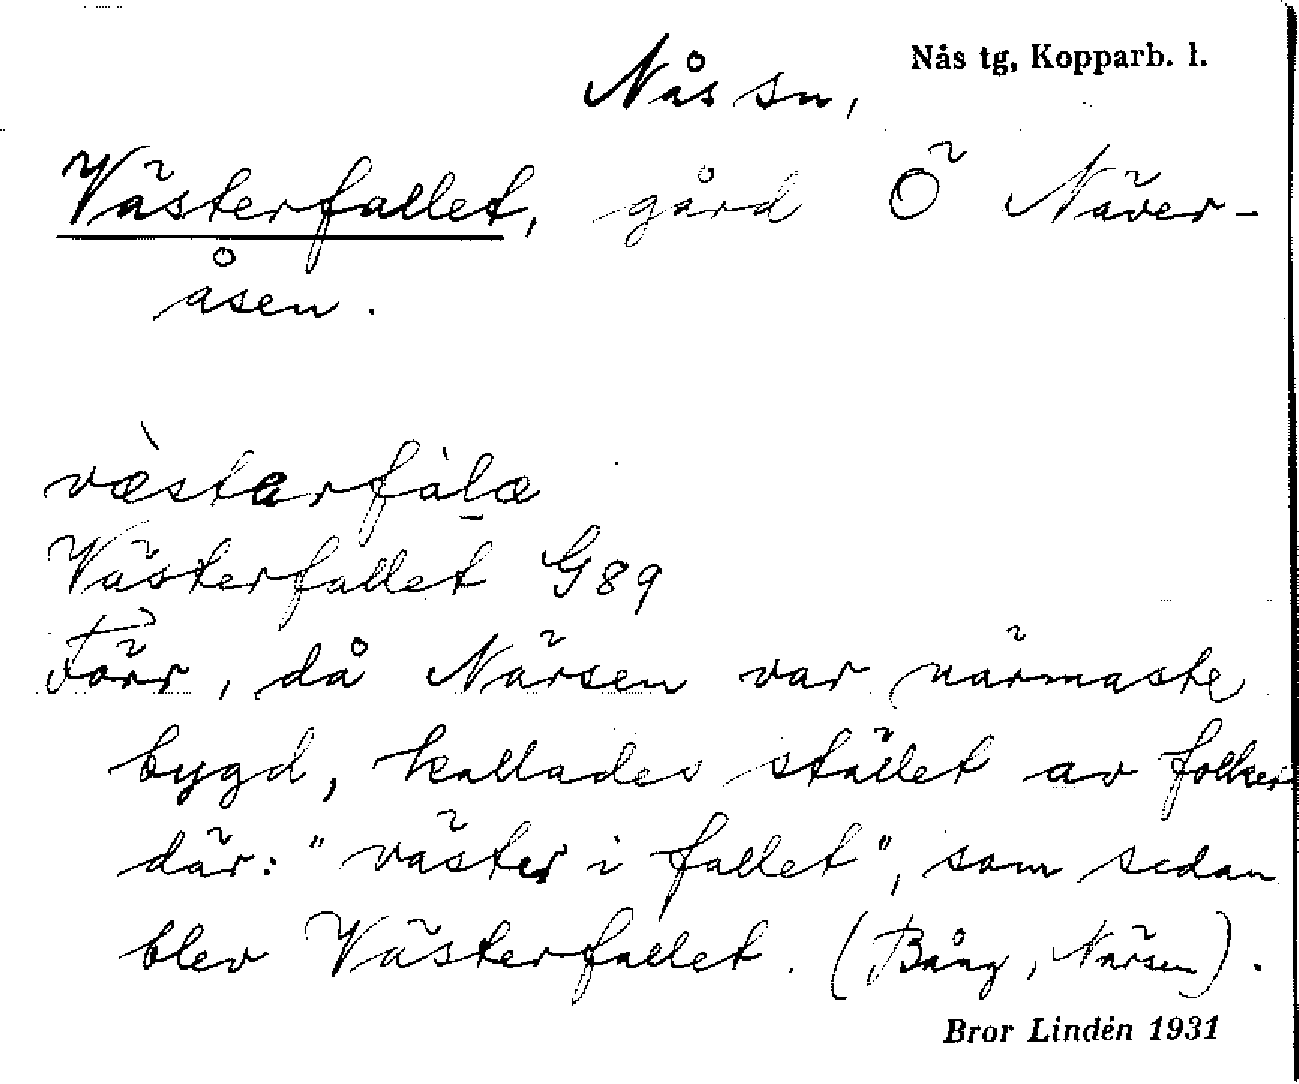 Nås tg, Kopparb. l.
Nås sn,
Västerfallet, gård Ö Näver-
åsen.
væ̀starfàl̠æ
Västerfallet G89
Förr, då Närsen var närmaste
bygd, kallades stället av folket
där: "väster i fallet", som sedan
blev Västerfallet. (Bång, Närsen).
Bror Lindén 1931